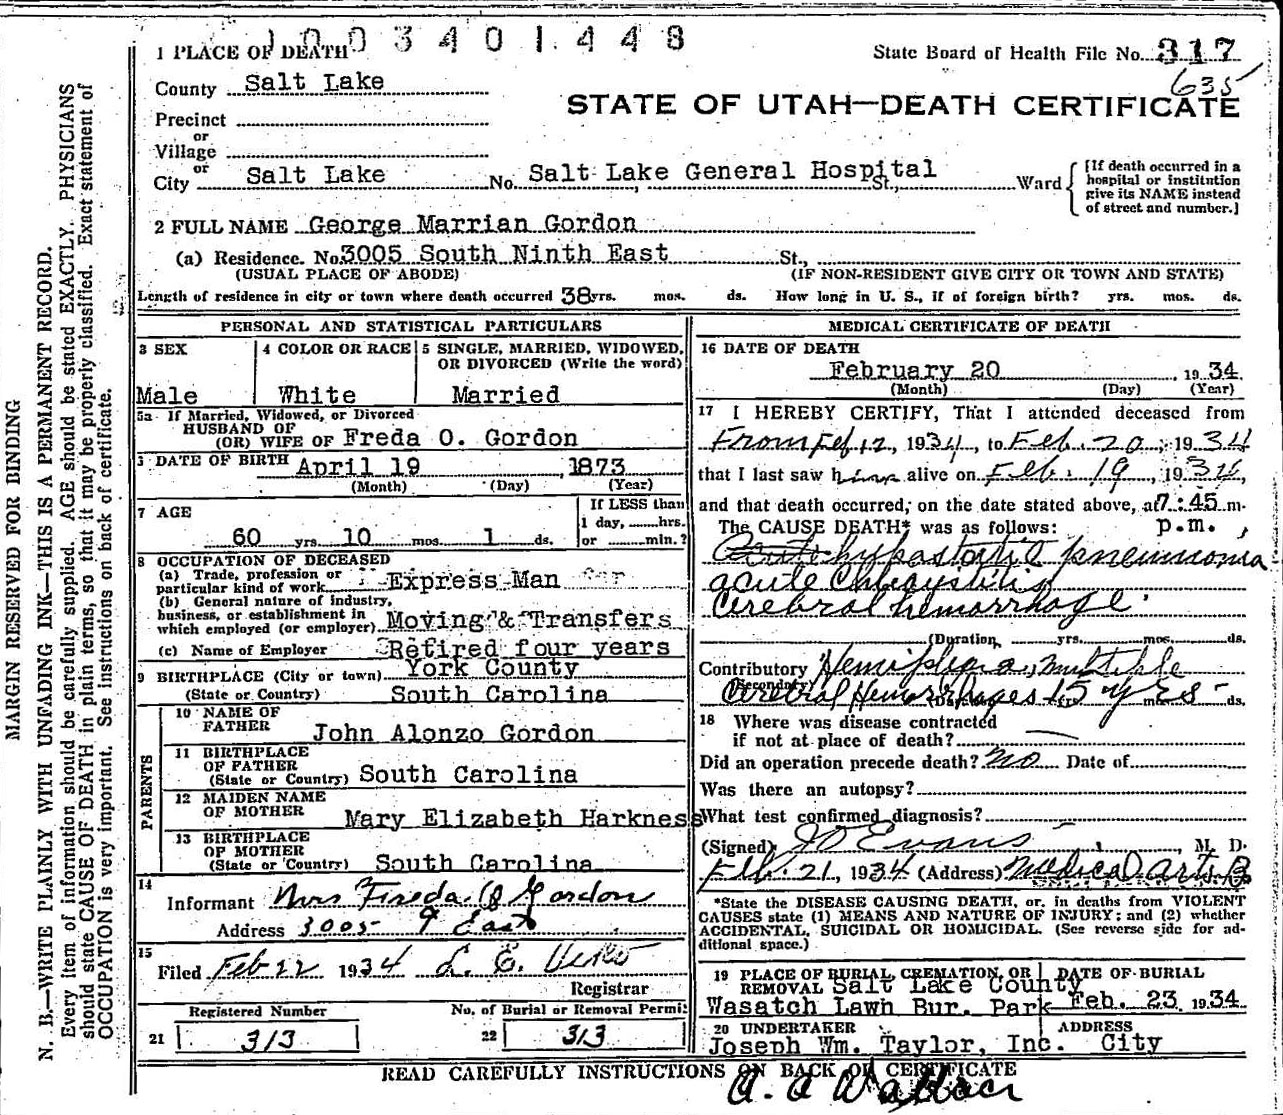 1003401448
1 PLACE OF DEATH
State Board of Health File No. 317
635
County Salt Lake
STATE OF UTAH—DEATH CERTIFICATE
Precinct
or
Village
or
City Salt Lake No. Salt Lake General Hospital St., Ward
[If death occurred in a hospital or institution give its NAME instead of street and number.]
2 FULL NAME George Marrian Gordon
(a) Residence. No. 3005 South Ninth East St.,
(USUAL PLACE OF ABODE) (IF NON-RESIDENT GIVE CITY OR TOWN AND STATE)
Length of residence in city or town where death occurred 38 yrs. mos. ds. How long in U. S., if of foreign birth? yrs. mos. ds.
PERSONAL AND STATISTICAL PARTICULARS
3 SEX
Male
4 COLOR OR RACE
White
5 SINGLE, MARRIED, WIDOWED,
OR DIVORCED (Write the word)
Married
5a If Married, Widowed, or Divorced
HUSBAND OF
(OR) WIFE OF Freda O. Gordon
DATE OF BIRTH April 19 1873
(Month) (Day) (Year)
7 AGE
60 yrs. 10 mos. 1 ds.
If LESS than
1 day, hrs.
or min.?
8 OCCUPATION OF DECEASED
(a) Trade, profession or
particular kind of work Express Man
(b) General nature of industry,
business, or establishment in
which employed (or employer) Moving & Transfers
(c) Name of Employer Retired four years
9 BIRTHPLACE (City or town) York County
(State or Country) South Carolina
PARENTS
10 NAME OF
FATHER John Alonzo Gordon
11 BIRTHPLACE
OF FATHER
(State or Country) South Carolina
12 MAIDEN NAME
OF MOTHER Mary Elizabeth Harkness
13 BIRTHPLACE
OF MOTHER
(State or Country) South Carolina
14
Informant Mrs Freda O Gordon
Address 3005 9 East
15
Filed Feb 22 1934 L. E.
Registrar
Registered Number
21 313
No. of Burial or Removal Permit
22 313
MEDICAL CERTIFICATE OF DEATH
16 DATE OF DEATH
February 20, 1934
(Month) (Day) (Year)
17 I HEREBY CERTIFY, That I attended deceased from
From Feb. 12, 1934, to Feb. 20, 1934
that I last saw him alive on Feb. 19, 1934,
and that death occurred, on the date stated above, at 7:45 m.
The CAUSE DEATH* was as follows: p.m.,
Acute hypostatic pneumonia
acute
Cerebral hemorrhage
(Duration yrs. mos. ds.
Contributory Hemiplegia, multiple
(Secondary) Cerebral Hemorrhages 15 yrs ds.
18 Where was disease contracted
if not at place of death?
Did an operation precede death? no Date of
Was there an autopsy?
What test confirmed diagnosis?
(Signed) Evans, M. D.
Feb. 21, 1934 (Address) Medical arts B
*State the DISEASE CAUSING DEATH, or, in deaths from VIOLENT
CAUSES state (1) MEANS AND NATURE OF INJURY; and (2) whether
ACCIDENTAL, SUICIDAL OR HOMICIDAL. (See reverse side for ad-
ditional space.)
19 PLACE OF BURIAL, CREMATION, OR
REMOVAL Salt Lake County
Wasatch Lawn Bur. Park
DATE OF BURIAL
Feb. 23, 1934
20 UNDERTAKER ADDRESS
Joseph Wm. Taylor, Inc. City
READ CAREFULLY INSTRUCTIONS ON BACK OF CERTIFICATE
MARGIN RESERVED FOR BINDING
N. B.—WRITE PLAINLY WITH UNFADING INK—THIS IS A PERMANENT RECORD.
Every item of information should be carefully supplied. AGE should be stated EXACTLY. PHYSICIANS
should state CAUSE OF DEATH in plain terms, so that it may be properly classified. Exact statement of
OCCUPATION is very important. See instructions on back of certificate.